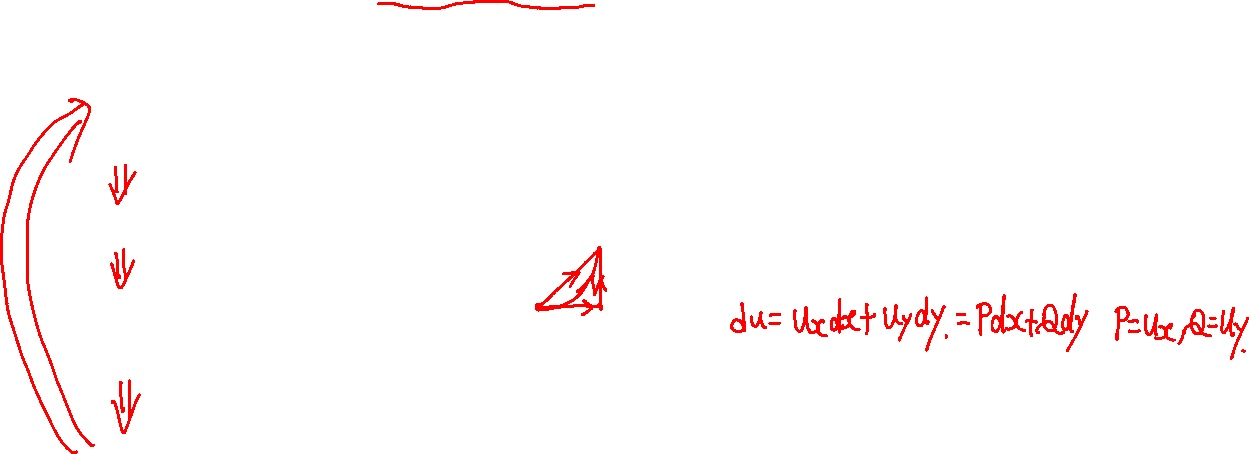 du = uxdx + uydy. = Pdx + Qdy P=ux, Q=uy.